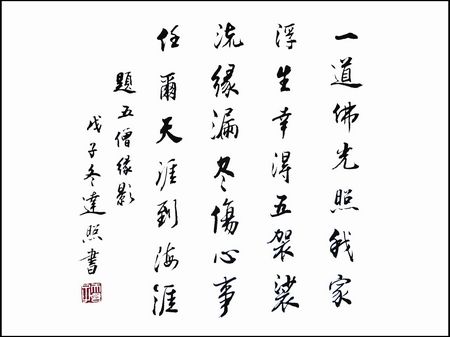 一道佛光照我家
浮生幸得五袈裟
流緣漏尽傷心事
任爾天涯到海涯
題五僧緣影
戊子冬達照書